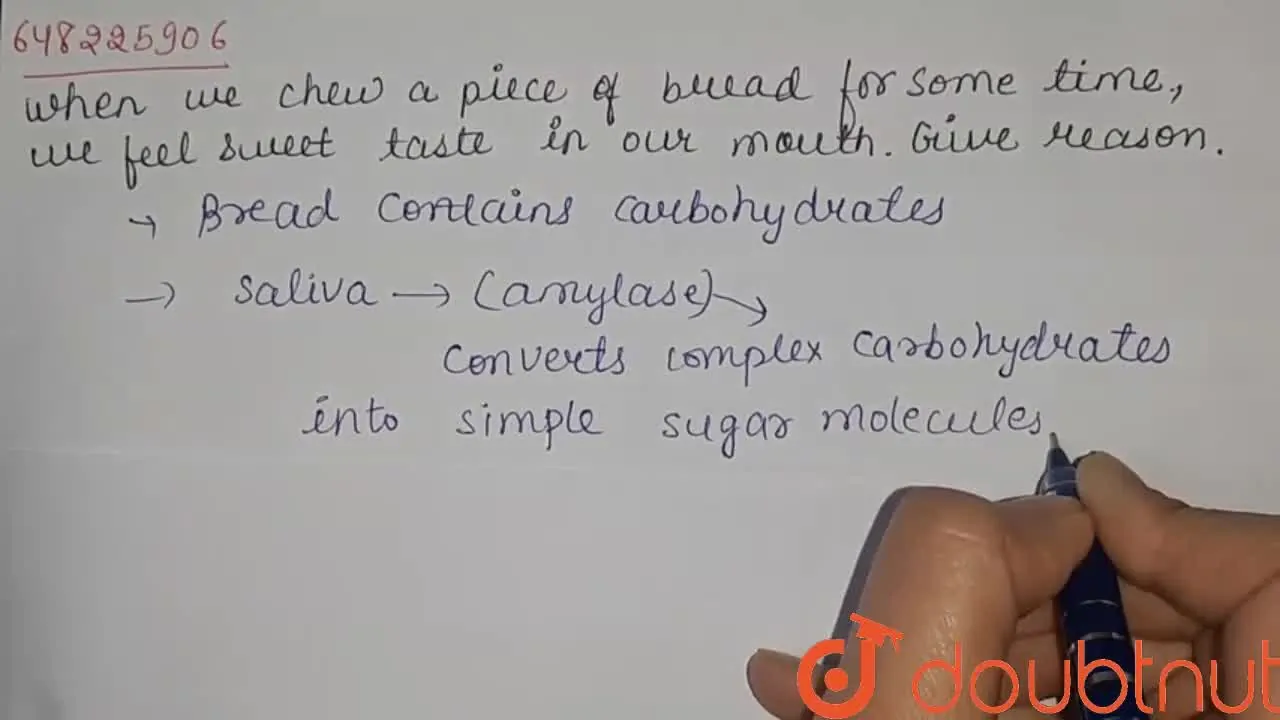 648225906
when we chew a piece of bread for some time,
we feel sweet taste in our mouth. Give reason.
→ Bread contains carbohydrates
→ saliva → (amylase) →
converts complex carbohydrates
into simple sugar molecules.
doubtnut